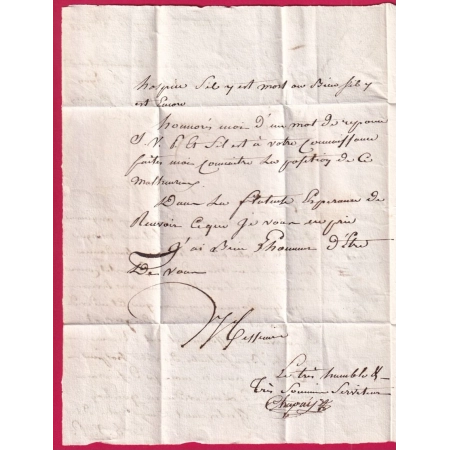 hospice s'il y est mort ou Bien s'il y
est Encore
honnorés moi d'un mot de reponse
S. V. P. Et s'il est à votre Connoissance
faites moi Connoitre La position de Ce
malheureux
Dans La flateuse Esperance de
Recevoir Ce que Je vous en prie
J'ai Bien l'honneur d'Etre
De vous
Messieurs
Le très humble &
très Soumis Serviteur